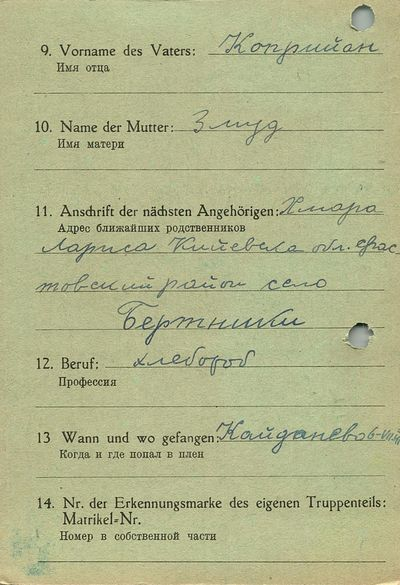 9. Vorname des Vaters: Коприйан
Имя отца
10. Name der Mutter: Змуд
Имя матери
11. Anschrift der nächsten Angehörigen: Хмара
Адрес ближайших родственников
Лариса Кийевска обл. Фас-
товский район село
Бертники
12. Beruf: хлебороб
Профессия
13 Wann und wo gefangen: Кайданево
Когда и где попал в плен
14. Nr. der Erkennungsmarke des eigenen Truppenteils:
Matrikel-Nr.
Номер в собственной части